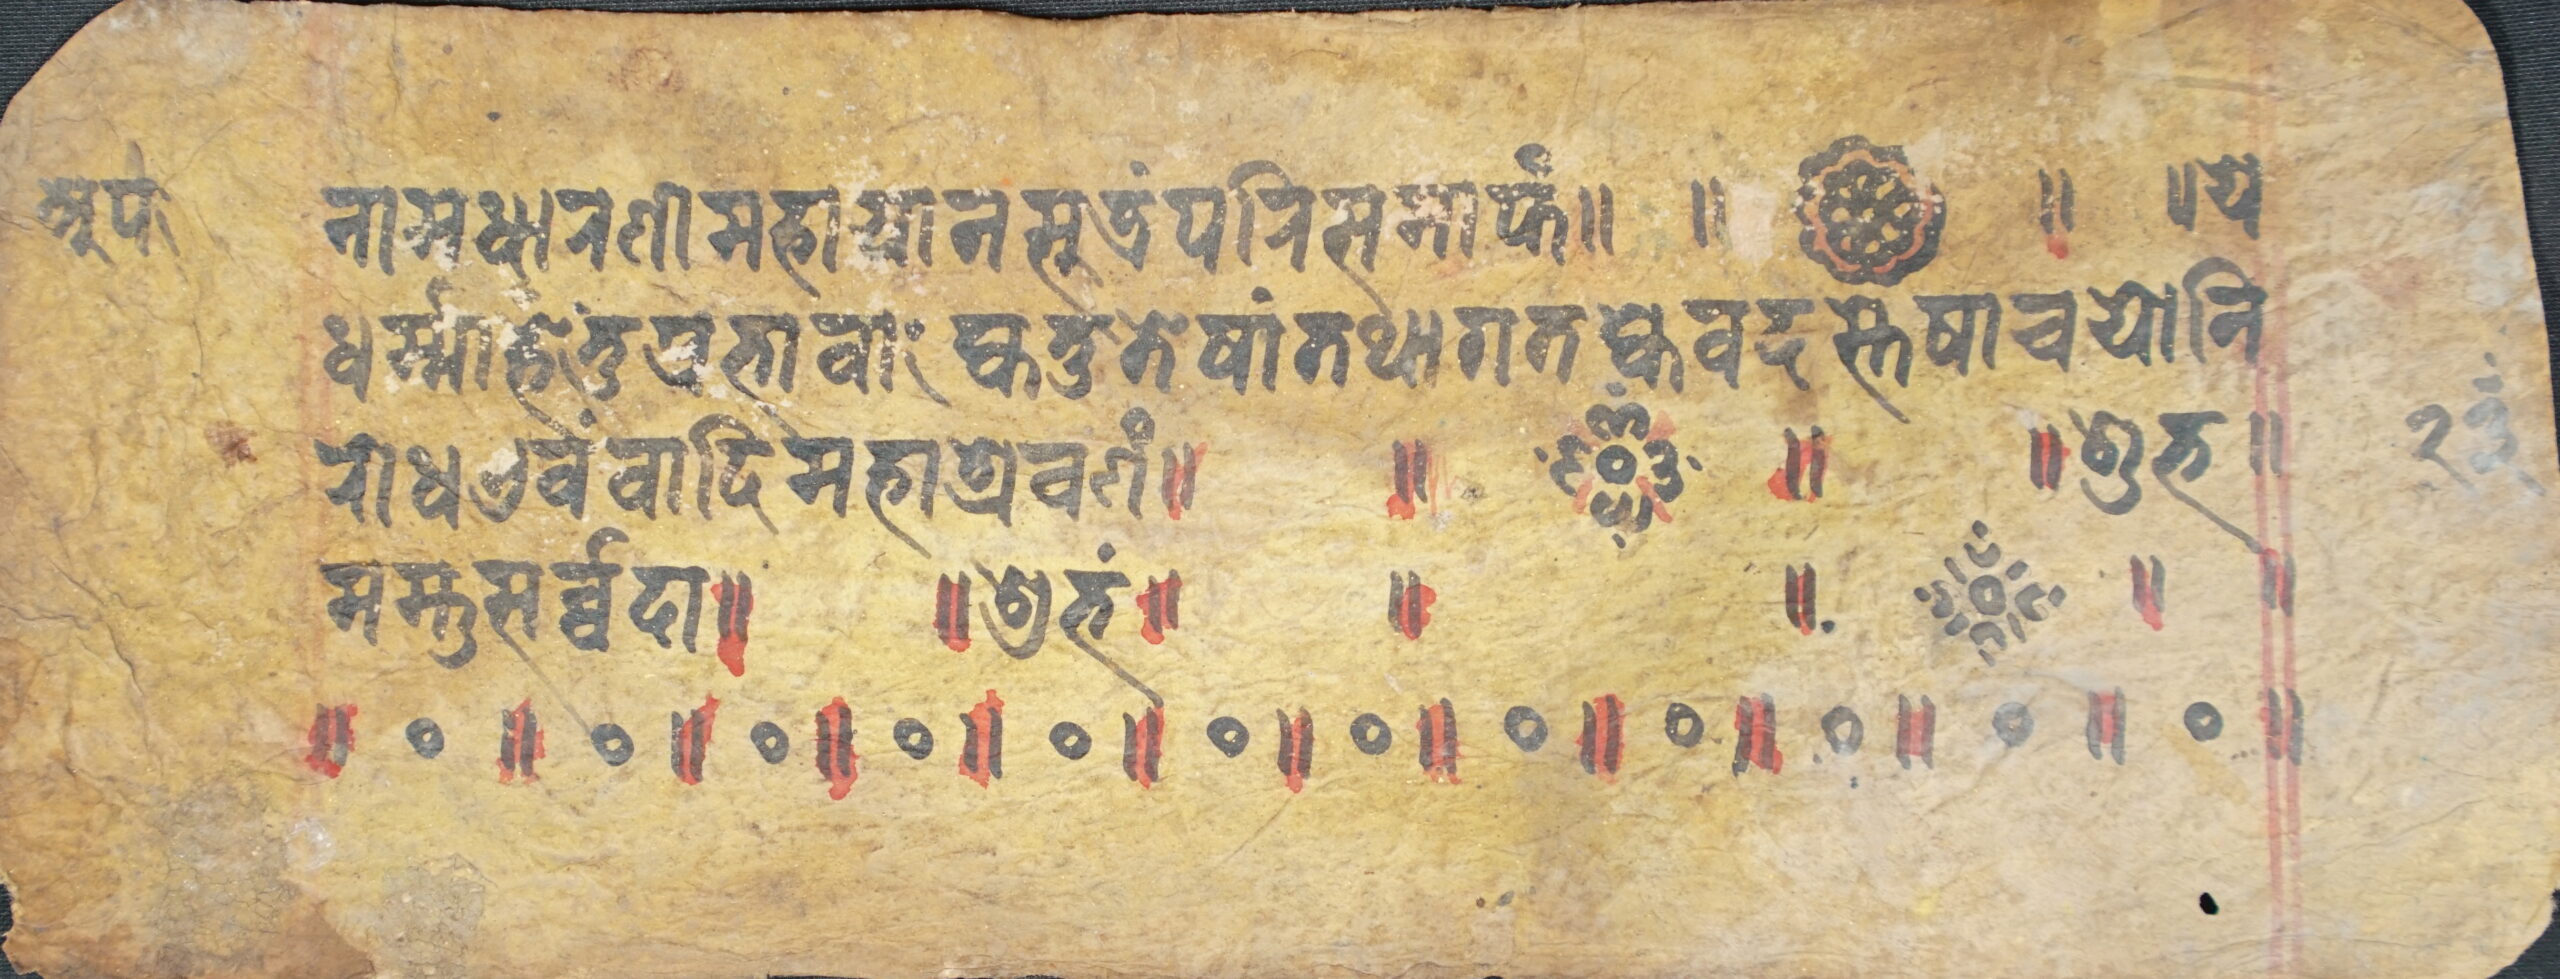 नामधारणीमहायानसूत्रंपरिसमाप्तं॥ ॥ ॥ ॥य
धर्म्माहेतुप्रभावाः हेतुतेषांतथागत ह्यवदत्तेषाचयोनि
रोधएवंवादिमहाश्रवणं॥ ॥ ॥ ॥शुभ॥
मस्तुसर्व्वदा॥ ॥शुभं॥ ॥ ॥ ॥ ॥
॥ ० ॥ ० ॥ ० ॥ ० ॥ ० ॥ ० ॥ ० ॥ ० ॥ ० ॥ ० ॥ ० ॥ ० ॥